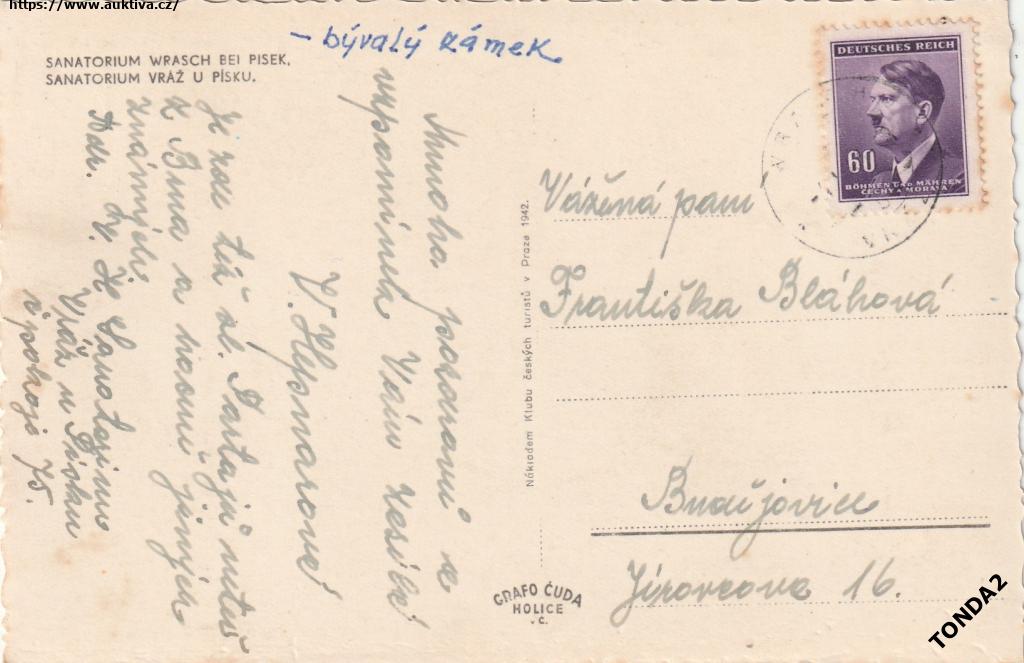 https://www.auktiva.cz/
- bývalý zámek
SANATORIUM WRASCH BEI PISEK.
SANATORIUM VRÁŽ U PÍSKU.
Mnoho pozdravů a
vzpomínek Vám zesílá
V.
Je zde též sl.
z Brna a hodně jiných
známých
Adr. Dr. H.
Vráž u Písku
pokoj 75.
Nákladem Klubu českých turistů v Praze 1942.
GRAFO ČUDA
HOLICE
v Č.
DEUTSCHES REICH
60
BÖHMEN UND MÄHREN
ČECHY A MORAVA
Vážená paní
Františka Bláhová
Budějovice
Jírovcova 16.
TONDA2